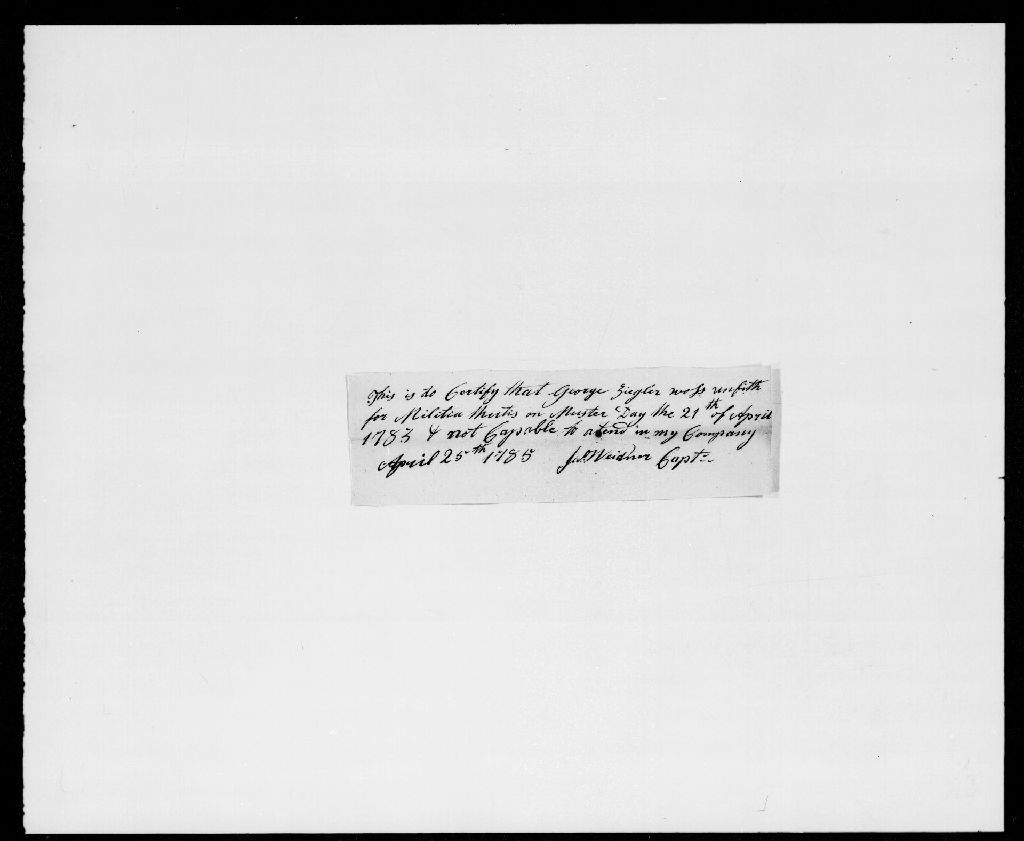 This is do Certify that George Ziegler wass unfitth
for Militia thutis on Muster Day the 21th of April
1783 & not Capable to atend in my Company
April 25th 1785 Weidner Capt.